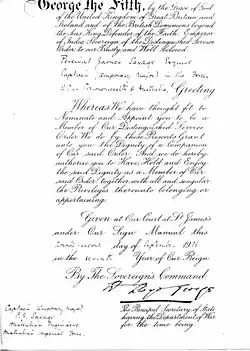 George the Fifth, by the Grace of God
of the United Kingdom of Great Britain and
Ireland and of the British Dominions beyond
the Seas King, Defender of the Faith, Emperor
of India, Sovereign of the Distinguished Service
Order to our Trusty and Well Beloved
Percival James Savage Esquire
Captain (temporary Major) in the Forces
of the Commonwealth of Australia, Greeting
Whereas We have thought fit to
Nominate and Appoint you to be a
Member of Our Distinguished Service
Order We do by these Presents Grant
unto you the Dignity of a Companion
of Our said Order And we do hereby
authorize you to Have Hold and Enjoy
the said Dignity as a Member of Our
said Order together with all and singular
the Privileges thereunto belonging or
appertaining.
Given at Our Court at St James's
under Our Sign Manual this
day of September 1916
in the seventh Year of Our Reign
By The Sovereign's Command
D Lloyd George
Captain (temporary Major)
P. J. Savage
Australian Engineers
Australian Imperial Force.
The Principal Secretary of State
having the Department of War
for the time being.